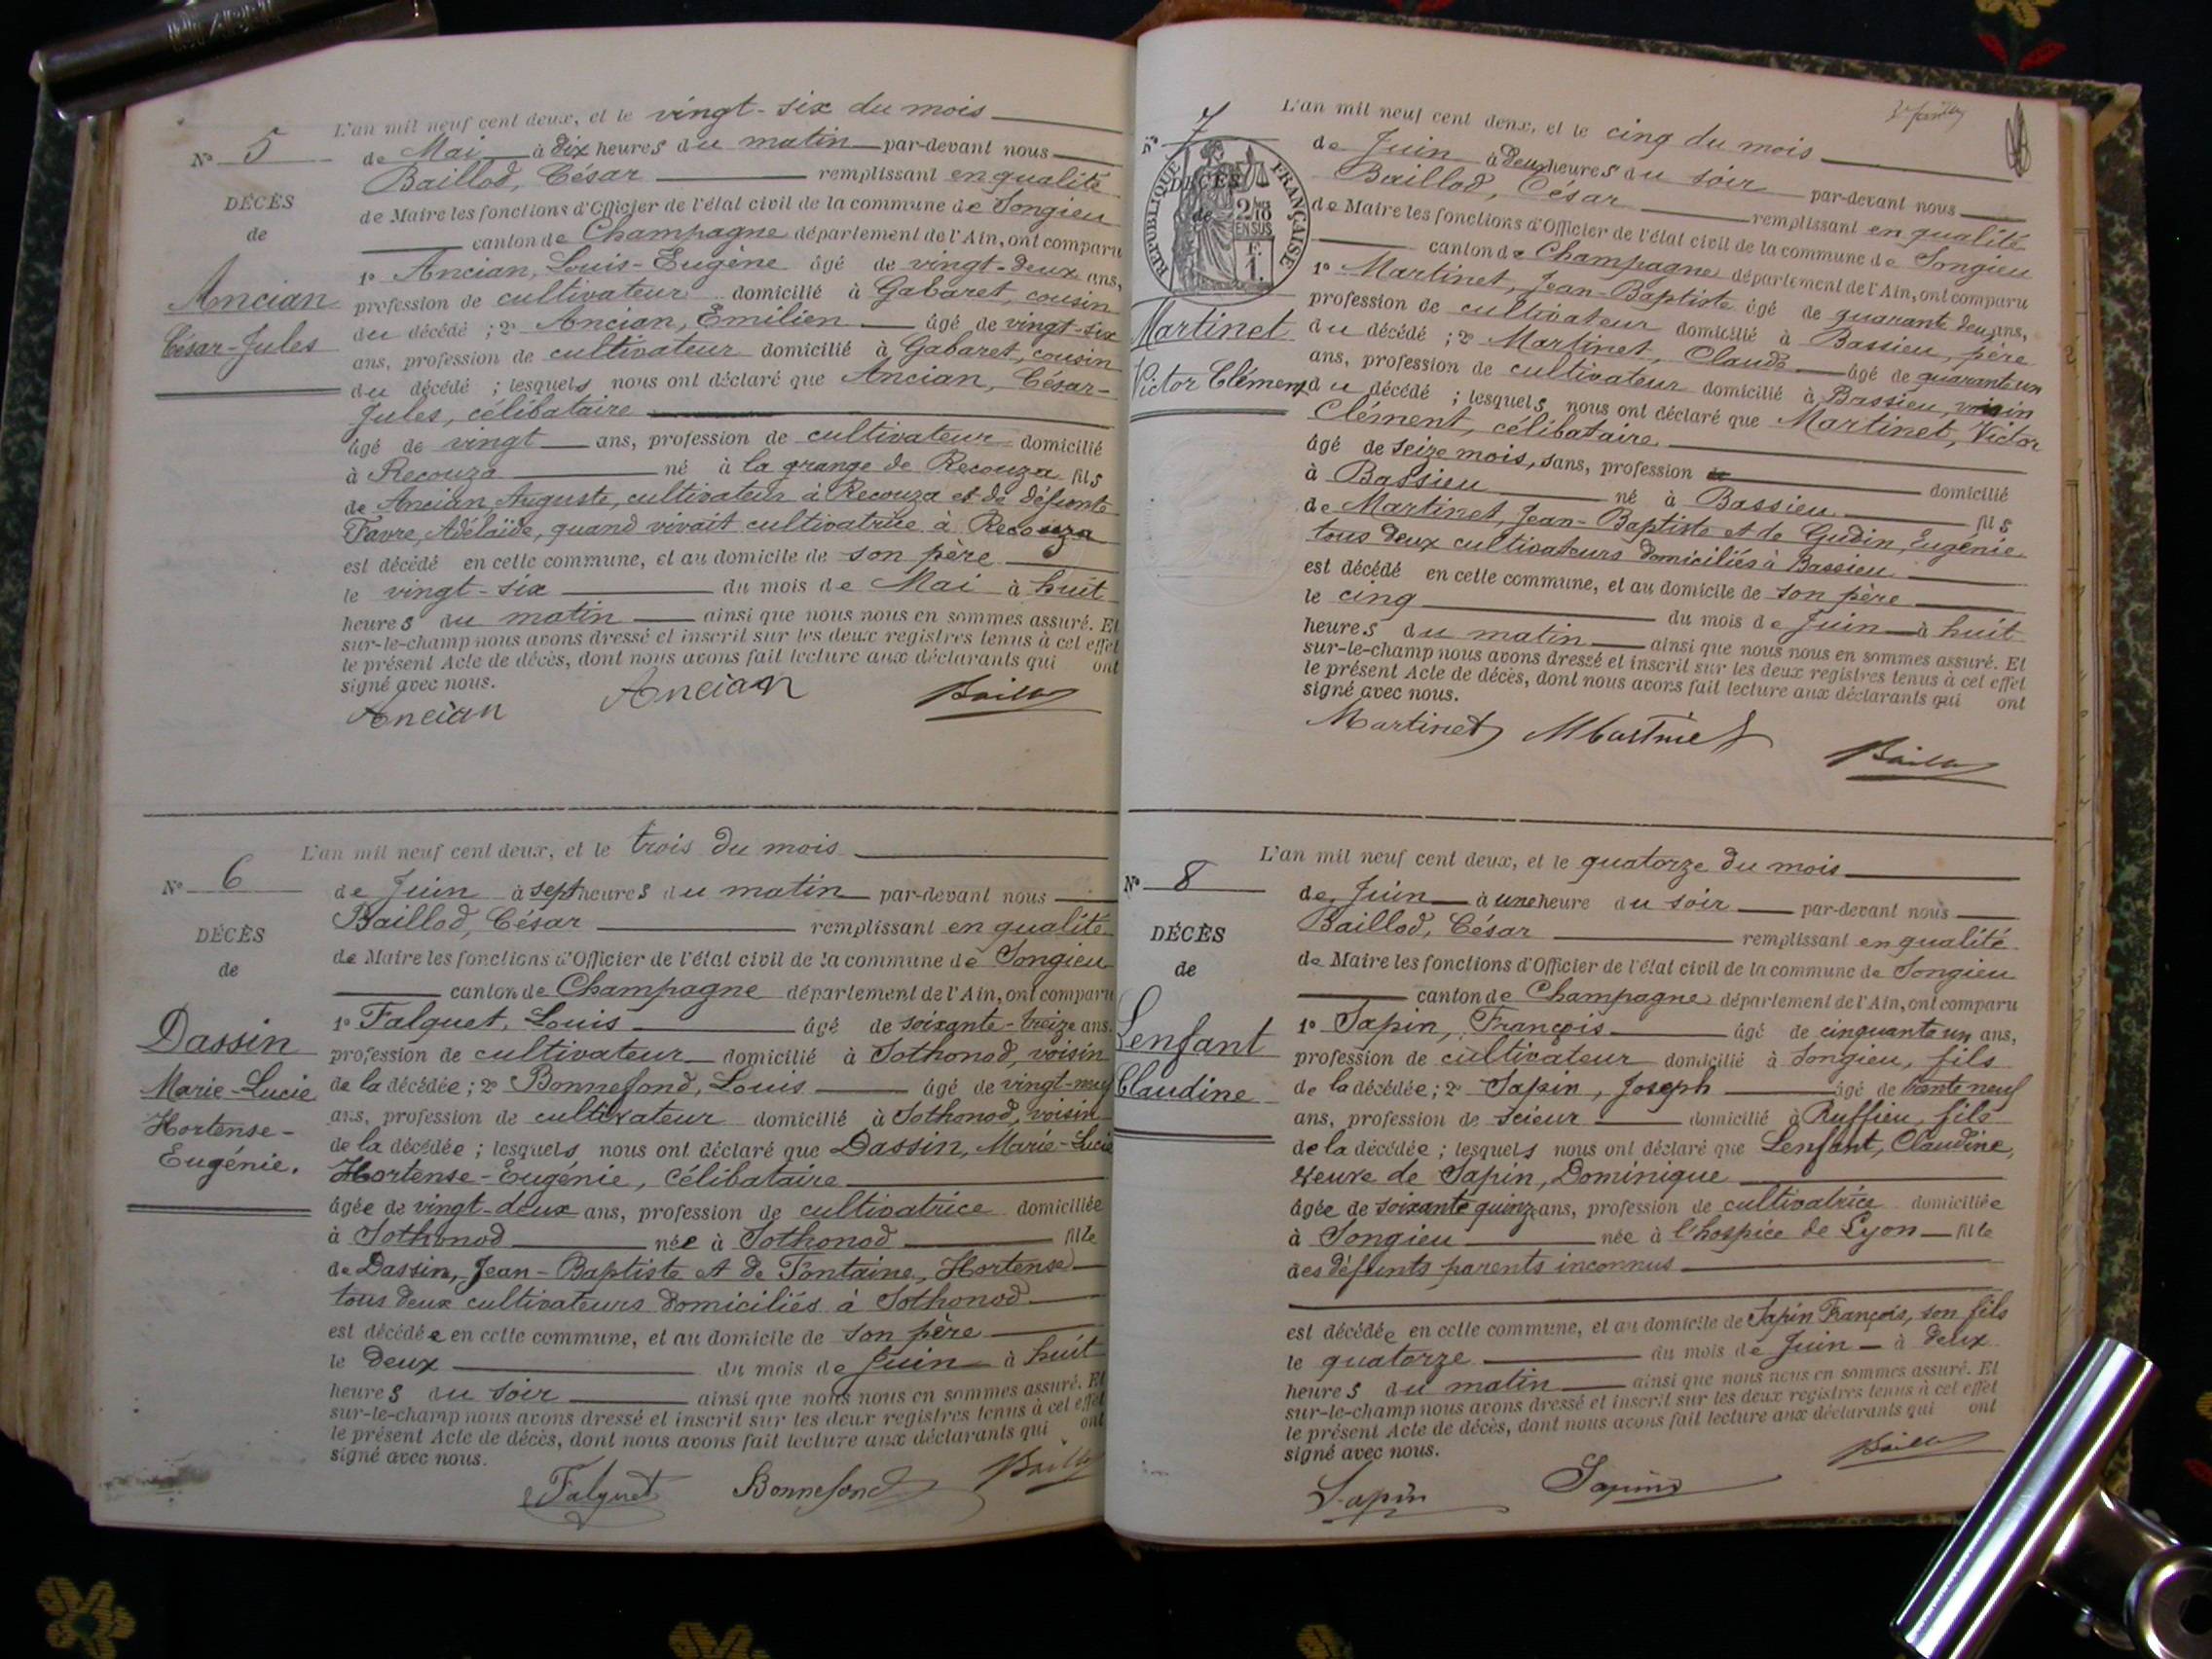 L'an mil neuf cent deux, et le vingt-six du mois
N° 5
de Mai à dix heures du matin par-devant nous
Baillod, César remplissant en qualité
DÉCÈS
de Maire les fonctions d'Officier de l'état civil de la commune de Songieu
de
canton de Champagne département de l'Ain, ont comparu
1° Ancian, Louis-Eugène âgé de vingt-deux ans,
Ancian
profession de cultivateur domicilié à Gabaret, cousin
du décédé ; 2° Ancian, Emilien âgé de vingt-six
César-Jules
ans, profession de cultivateur domicilié à Gabaret, cousin
du décédé ; lesquels nous ont déclaré que Ancian, César-
Jules, célibataire
âgé de vingt ans, profession de cultivateur domicilié
à Recouza né à la grange de Recouza fils
de Ancian, Auguste, cultivateur à Recouza et de défunte
Favre, Adélaïde, quand vivait cultivatrice à Recouza
est décédé en cette commune, et au domicile de son père
le vingt-six du mois de Mai à huit
heures du matin ainsi que nous nous en sommes assuré. Et
sur-le-champ nous avons dressé et inscrit sur les deux registres tenus à cet effet
le présent Acte de décès, dont nous avons fait lecture aux déclarants qui ont
signé avec nous.
Ancian Ancian Baillod
L'an mil neuf cent deux, et le trois du mois
N° 6
de Juin à sept heures du matin par-devant nous
Baillod, César remplissant en qualité
DÉCÈS
de Maire les fonctions d'Officier de l'état civil de la commune de Songieu
de
canton de Champagne département de l'Ain, ont comparu
1° Falquet, Louis âgé de soixante-treize ans.
Dassin
profession de cultivateur domicilié à Sothonod, voisin
Marie-Lucie
de la décédée ; 2° Bonnefond, Louis âgé de vingt-neuf
ans, profession de cultivateur domicilié à Sothonod, voisin
Hortense-
de la décédée ; lesquels nous ont déclaré que Dassin, Marie-Lucie
Eugénie.
Hortense-Eugénie, célibataire
âgée de vingt-deux ans, profession de cultivatrice domiciliée
à Sothonod née à Sothonod fille
de Dassin, Jean-Baptiste et de Fontaine, Hortense
tous deux cultivateurs domiciliés à Sothonod
est décédée en cette commune, et au domicile de son père
le deux du mois de Juin à huit
heures du soir ainsi que nous nous en sommes assuré. Et
sur-le-champ nous avons dressé et inscrit sur les deux registres tenus à cet effet
le présent Acte de décès, dont nous avons fait lecture aux déclarants qui ont
signé avec nous.
Falquet Bonnefond Baillod
L'an mil neuf cent deux, et le cinq du mois
N° 7
de Juin à deux heures du soir par-devant nous
Baillod, César remplissant en qualité
RÉPUBLIQUE FRANÇAISE
DÉCÈS
de
2/10
EN SUS
F.
1.
de Maire les fonctions d'Officier de l'état civil de la commune de Songieu
canton de Champagne département de l'Ain, ont comparu
1° Martinet, Jean-Baptiste âgé de quarante deux ans,
profession de cultivateur domicilié à Bassieu, père
Martinet
du décédé ; 2° Martinet, Claude âgé de quarante un
ans, profession de cultivateur domicilié à Bassieu, voisin
Victor Clément
du décédé ; lesquels nous ont déclaré que Martinet, Victor
Clément, célibataire
âgé de seize mois, sans, profession de domicilié
à Bassieu né à Bassieu fils
de Martinet, Jean-Baptiste et de Gudin, Eugénie
tous deux cultivateurs domiciliés à Bassieu
est décédé en cette commune, et au domicile de son père
le cinq du mois de Juin à huit
heures du matin ainsi que nous nous en sommes assuré. Et
sur-le-champ nous avons dressé et inscrit sur les deux registres tenus à cet effet
le présent Acte de décès, dont nous avons fait lecture aux déclarants qui ont
signé avec nous.
Martinet Martinet Baillod
L'an mil neuf cent deux, et le quatorze du mois
N° 8
de Juin à une heure du soir par-devant nous
Baillod, César remplissant en qualité
DÉCÈS
de Maire les fonctions d'Officier de l'état civil de la commune de Songieu
de
canton de Champagne département de l'Ain, ont comparu
1° Sapin, François âgé de cinquante un ans,
Lenfant
profession de cultivateur domicilié à Songieu, fils
Claudine
de la décédée ; 2° Sapin, Joseph âgé de trente neuf
ans, profession de scieur domicilié à Ruffieu, fils
de la décédée ; lesquels nous ont déclaré que Lenfant, Claudine,
veuve de Sapin, Dominique
âgée de soixante quinze ans, profession de cultivatrice domiciliée
à Songieu née à l'hospice de Lyon fille
des défunts parents inconnus
est décédée en cette commune, et au domicile de Sapin François, son fils
le quatorze du mois de Juin à deux
heures du matin ainsi que nous nous en sommes assuré. Et
sur-le-champ nous avons dressé et inscrit sur les deux registres tenus à cet effet
le présent Acte de décès, dont nous avons fait lecture aux déclarants qui ont
signé avec nous.
Sapin Sapin Baillod